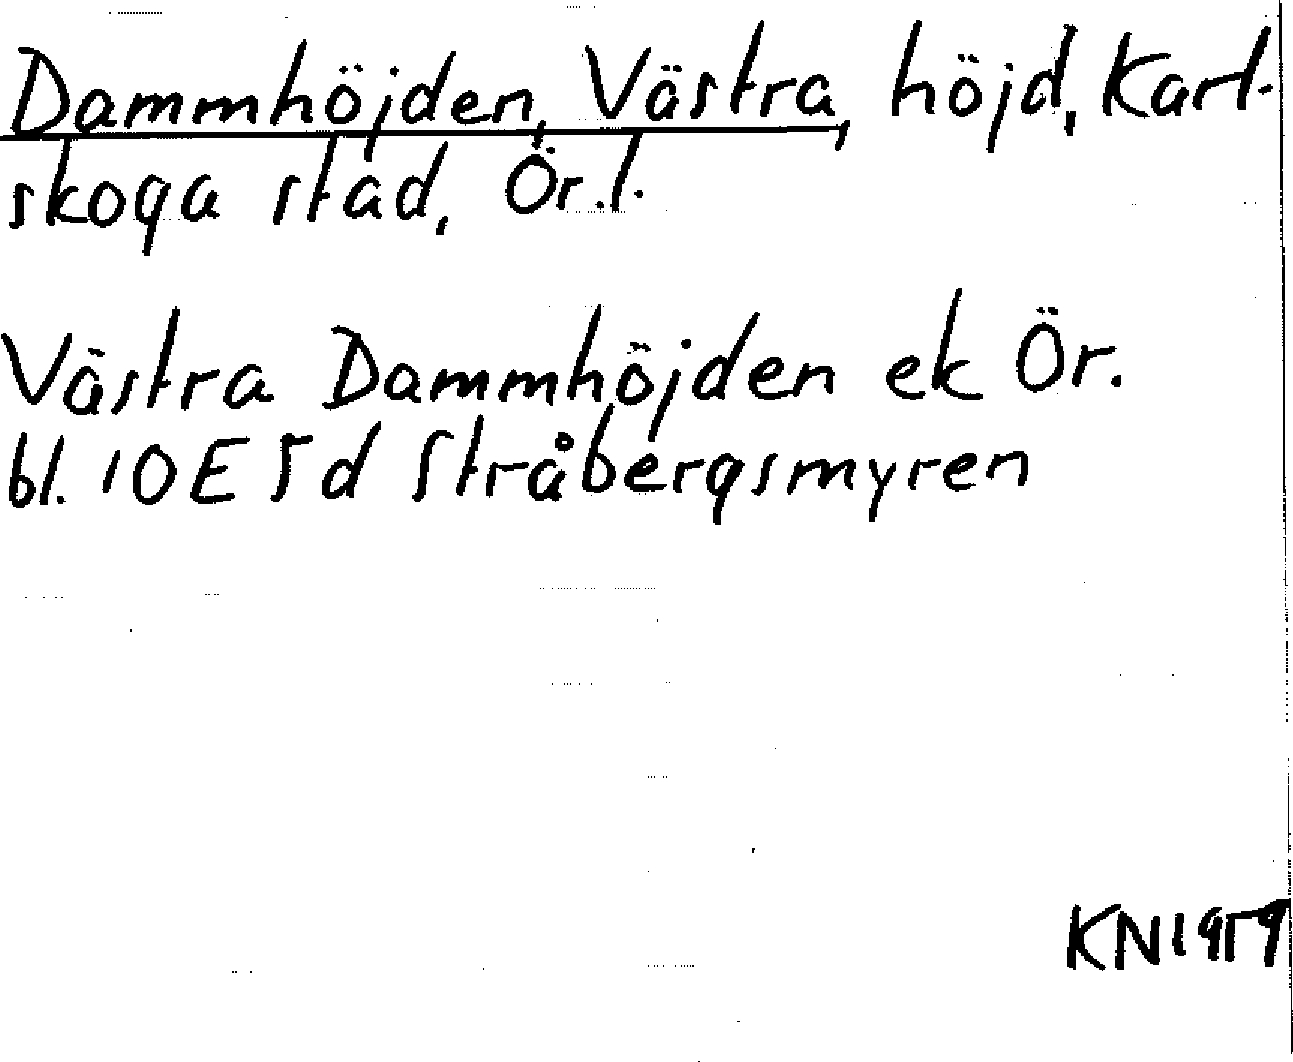 Dammhöjden, Västra, höjd, Karl-
skoga stad, Ör.l.
Västra Dammhöjden ek Ör.
bl. 10E5d Stråbergsmyren
KN1959